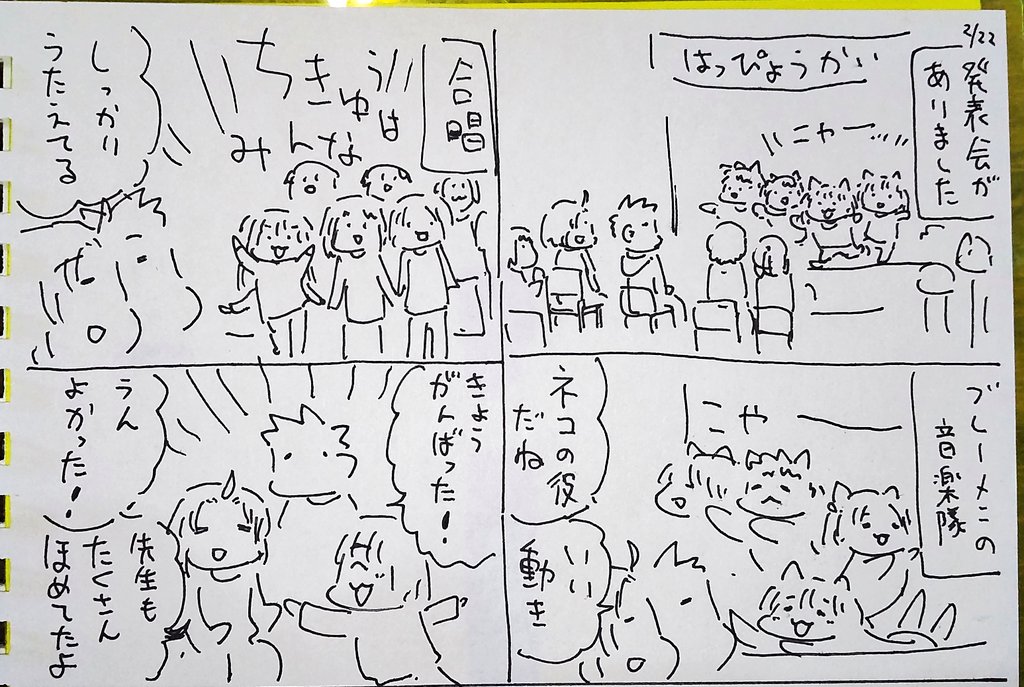 2/22
発表会が
ありました
はっぴょうかい
ニャー
ブレーメンの
音楽隊
にゃー
ネコの役
だね
いい
動き
合唱
ちきゅうは
みんな
しっかり
うたえてる
きょう
がんばった!
うん
よかった!
先生も
たくさん
ほめてたよ